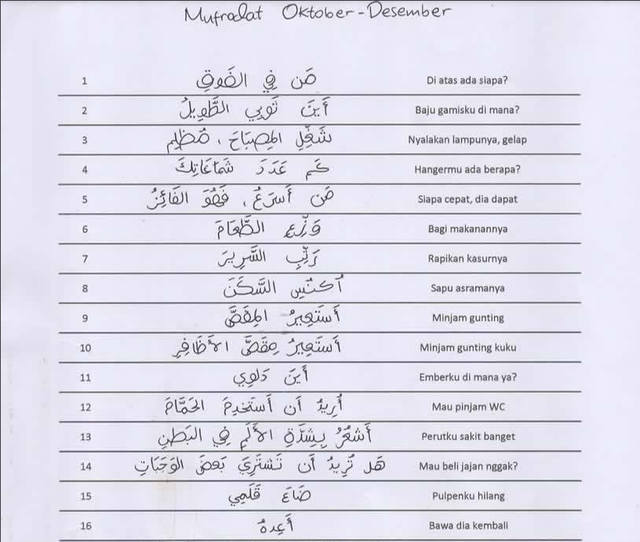 Mufradat Oktober-Desember
1 مَن فِي الفَوقِ Di atas ada siapa?
2 أَينَ ثَوبِي الطَّوِيلُ Baju gamisku di mana?
3 شَغِّلِ المِصبَاحَ ، مُظلِم Nyalakan lampunya, gelap
4 كَم عَدَدَ شَمَّاعَاتِكَ Hangermu ada berapa?
5 مَن أَسرَعُ ، فَهُوَ الفَائِزُ Siapa cepat, dia dapat
6 وَزِّع الطَّعَامَ Bagi makanannya
7 رَتِّبِ السَّرِيرَ Rapikan kasurnya
8 اُكنُسِ السَّكَنَ Sapu asramanya
9 أَستَعِيرُ المِقَصَّ Minjam gunting
10 أَستَعِيرُ مِقَصَّ الأَظَافِرِ Minjam gunting kuku
11 أَينَ دَلوِي Emberku di mana ya?
12 أُرِيدُ أَن أَستَخدِمَ الحَمَّامَ Mau pinjam WC
13 أَشعُرُ بِشِدَّةِ الأَلَمِ فِي البَطنِ Perutku sakit banget
14 هَل تُرِيدُ أَن تَشتَرِيَ بَعضَ الوَجَبَاتِ Mau beli jajan nggak?
15 ضَاعَ قَلَمِي Pulpenku hilang
16 أَعِدهُ Bawa dia kembali